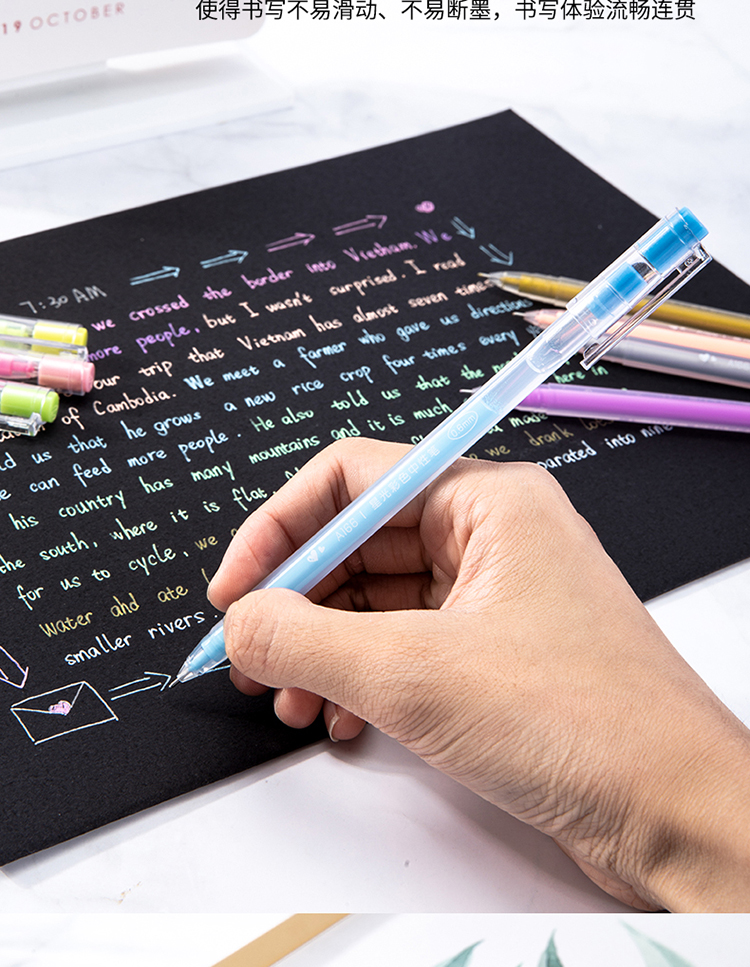 使得书写不易滑动、不易断墨，书写体验流畅连贯
19 OCTOBER
7:30 AM
we crossed the border into Vietnam. We
more people, but I wasn't surprised. I read
our trip that Vietnam has almost seven times
of Cambodia. We meet a farmer who gave us directions
us that he grows a new rice crop four times every
we can feed more people. He also told us that the here in
his country has many mountains and it is much
the south, where it is flat.
for us to cycle, we we drank
Water and ate parated into nine
smaller rivers.
0.6mm
AI661 星光彩色中性笔